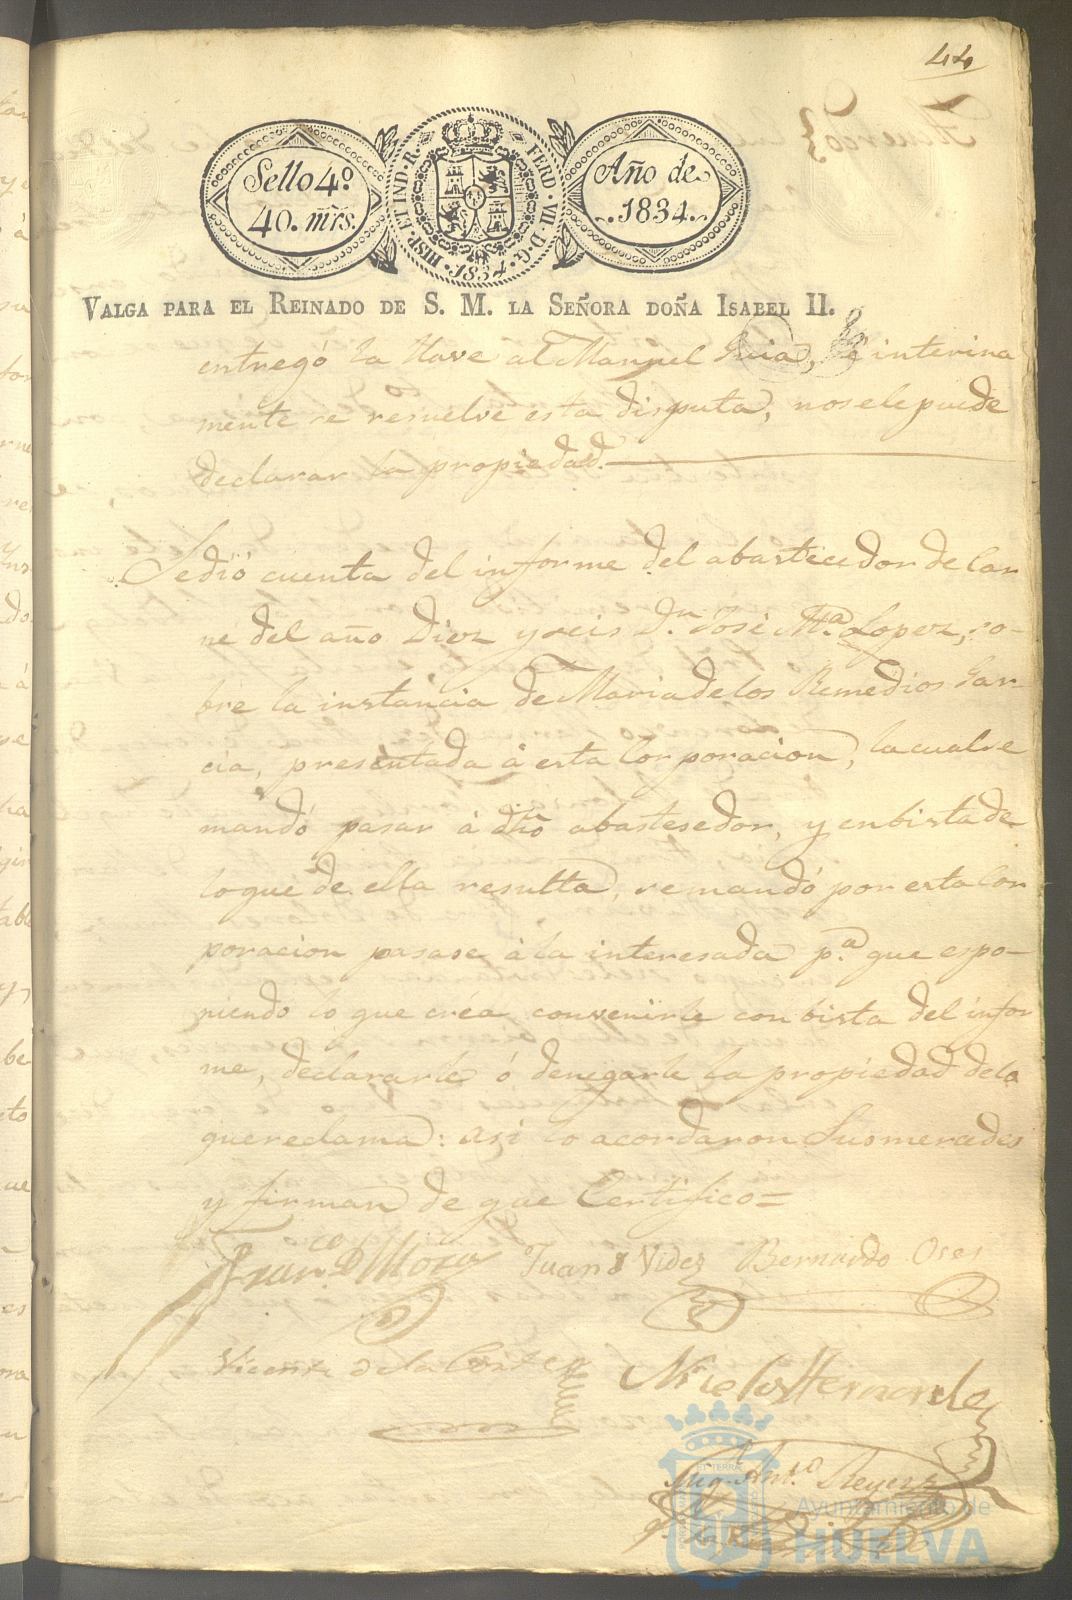 44
Sello 4º
40. mrs.
HISP. ET IND. R. FERD. VII. D. G. 1834.
Año de
1834.
VALGA PARA EL REINADO DE S. M. LA SEÑORA DOÑA ISABEL II.
entregó la llave al Manuel é interina
mente se resuelve esta disputa, nosele puede
declarar la propiedad.
Sedió cuenta del informe del abastecedor de Car
ne del año Diez y seis Dn. José Mª. Lopez, so-
bre la instancia de Maria delos Remedios Gar-
cia, presentada á esta Corporacion, la cual se
mandó pasar á dho abastesedor, y enbista de
loque de ella resulta, se mandó por esta Cor
poracion pasase á la interesada pª. que espo-
niendo lo que créa convenirle con bista del infor
me, declararle ó denegarle la propiedad dela
que reclama: asi lo acordaron Susmercedes
y firman de que Certifico=
Franco. Mora Juan Videz Bernardo Oses
Vicente de la Corte Nicolas Hernandez
Anto. Reyes
Ayuntamiento de
HUELVA